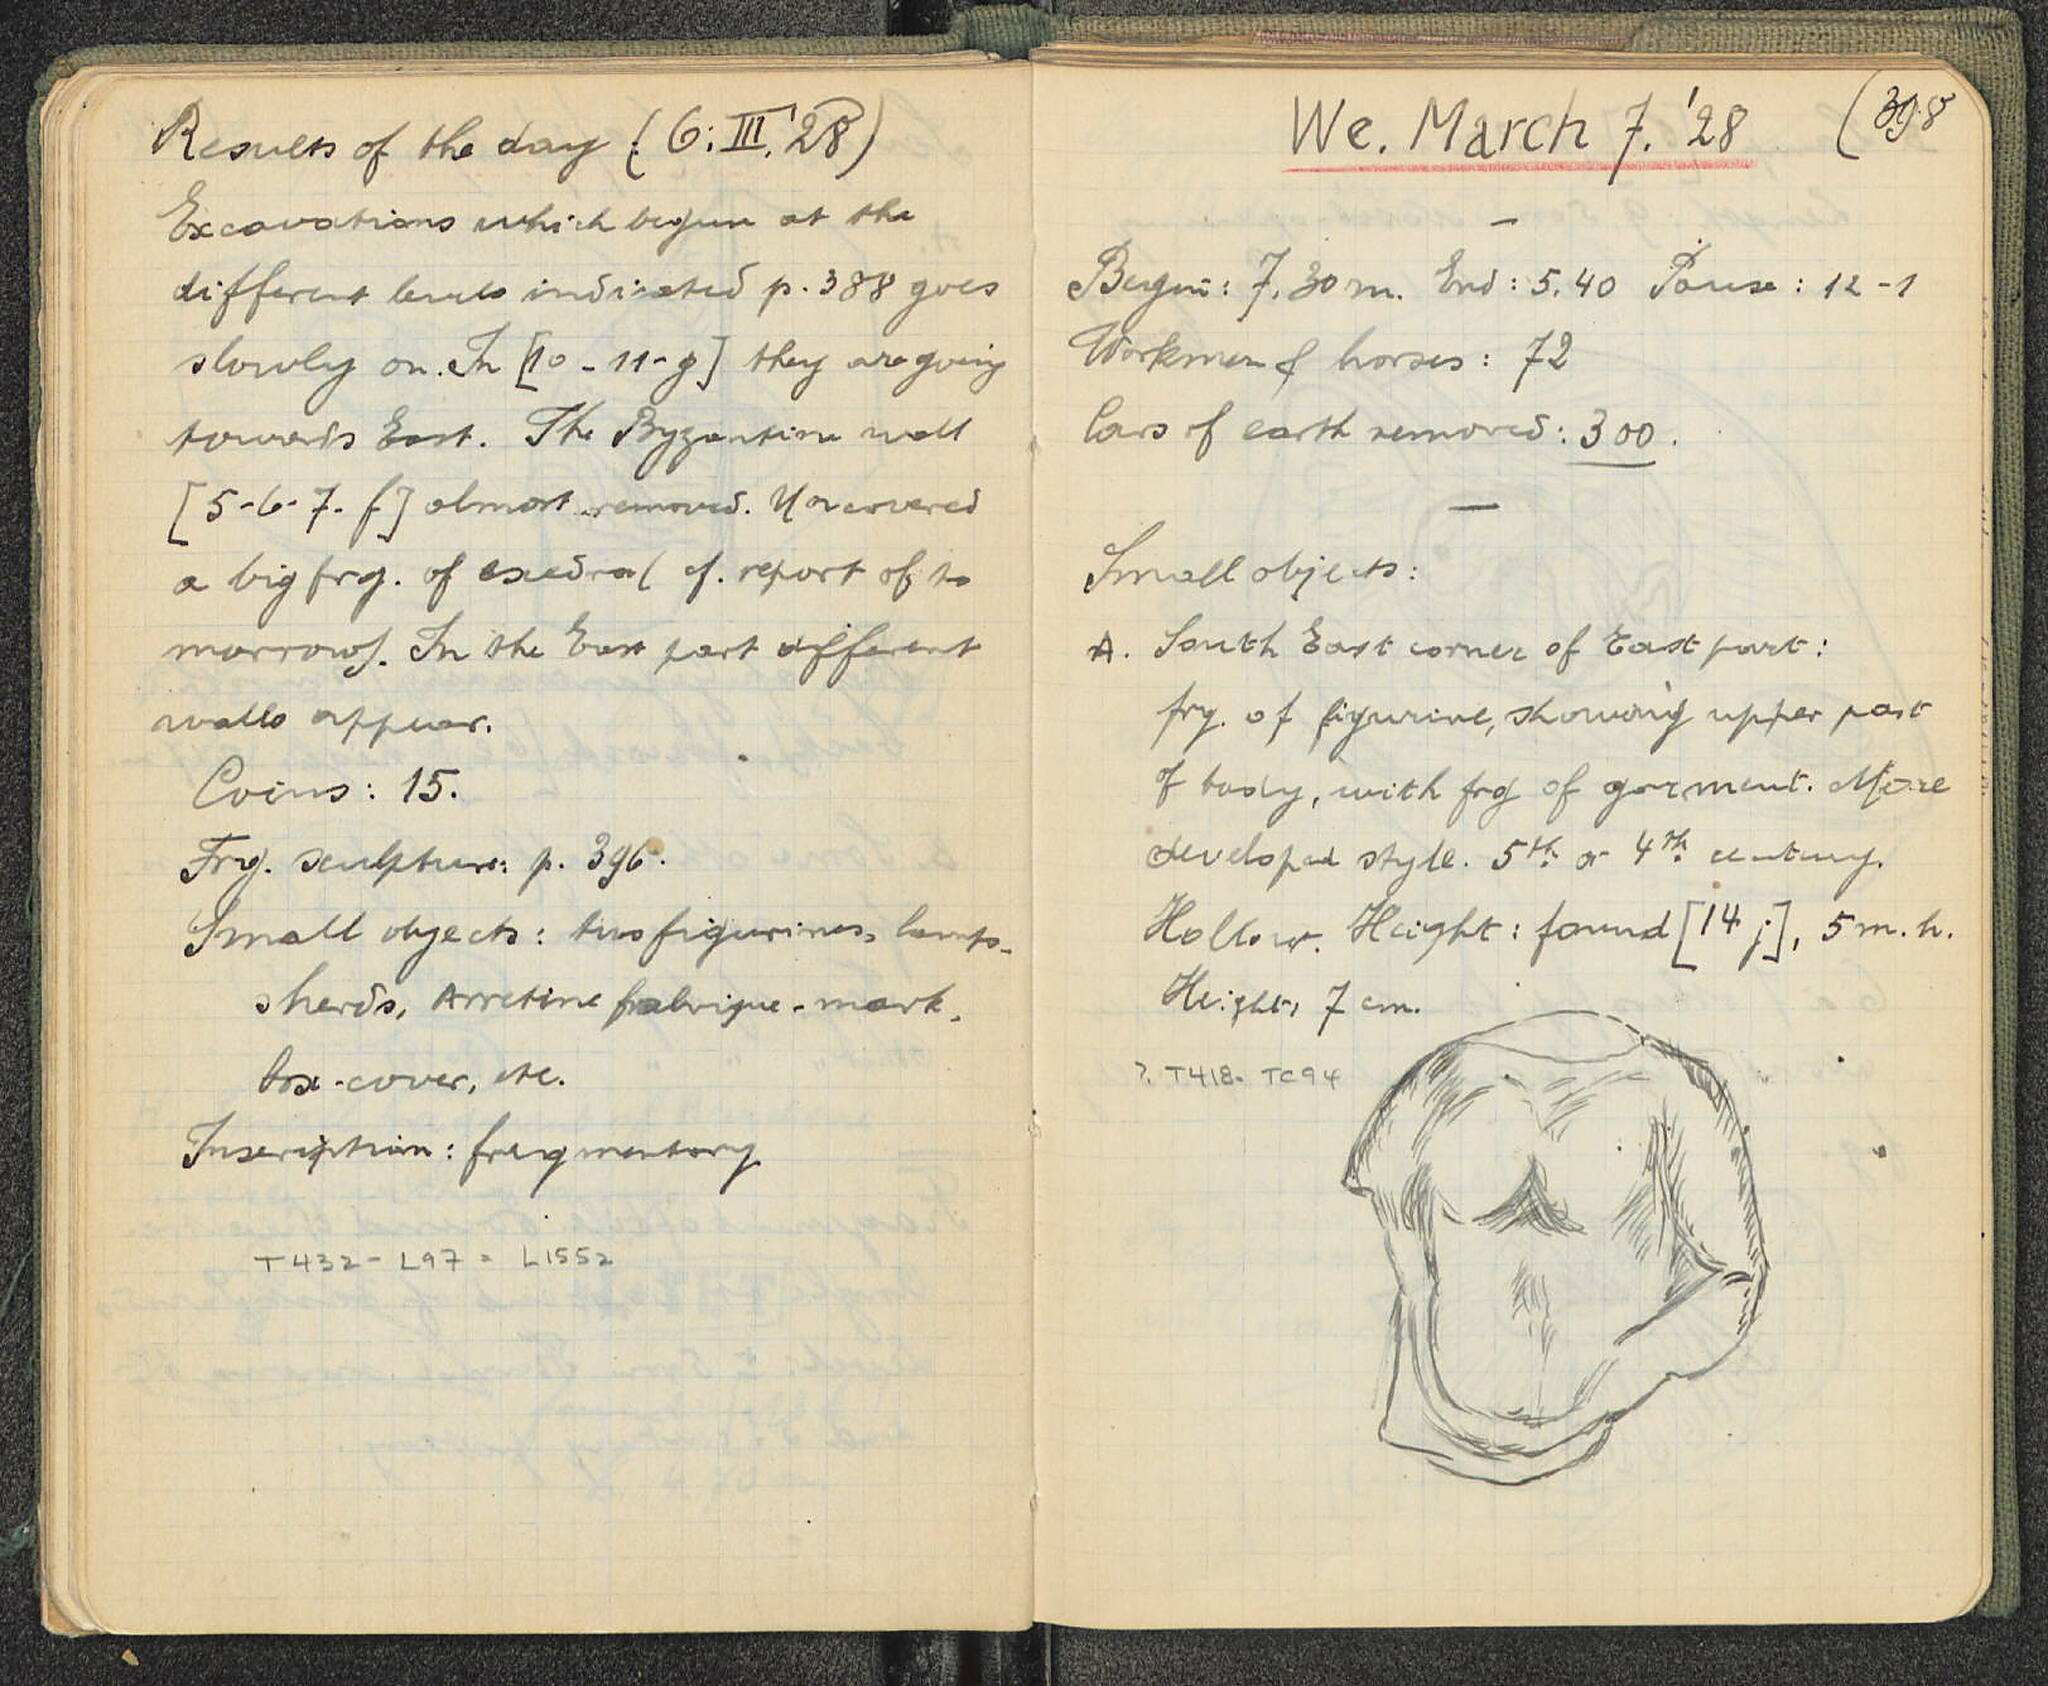 Results of the day (6: III, '28)
Excavations which begun at the
different levels indicated p. 388 goes
slowly on. In [10 - 11 - g] they are going
towards East. The Byzantine wall
[5-6-7-f] almost removed. Uncovered
a big frg. of exedra (cf. report of to
morrow). In the East part different
walls appear.
Coins: 15.
Frg. sculpture: p. 396.
Small objects: two figurines, lamps-
sherds, Arretine fabrique-mark,
box-cover, etc.
Inscription: fragmentary
T432 - L97 = L1552
We. March 7. '28
(398
Begin: 7.30 m. End: 5.40 Pause: 12-1
Workmen & horses: 72
Cars of earth removed: 300.
Small objects:
A. South East corner of East part:
frg. of figurine, showing upper part
of body, with frg of garment. More
developed style. 5th. or 4th. century.
Hollow. Height: found [14 j], 5 m. h.
Height, 7 cm.
?. T418. TC94